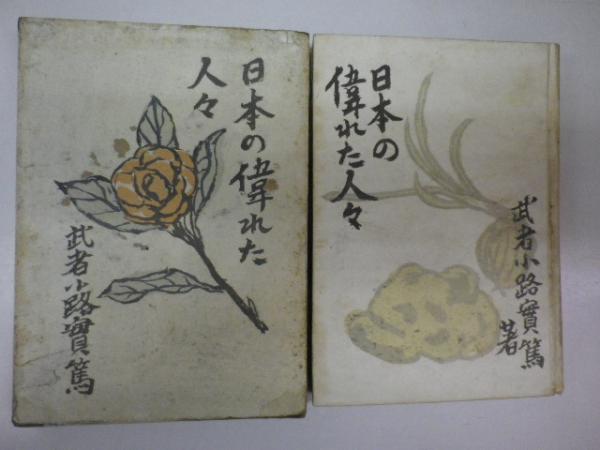 日本の偉れた
人々
武者小路實篤
日本の
偉れた人々
武者小路實篤
著